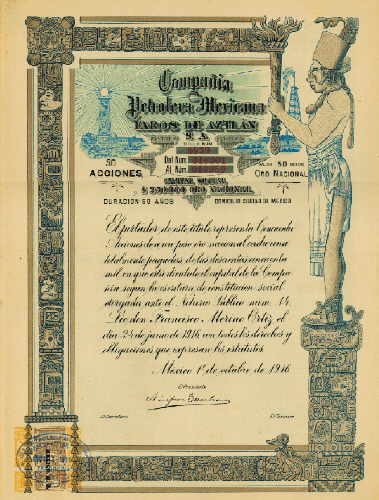 Compañia
Petrolera Mexicana
FAROS DE AZTLÁN
S.A.
50
ACCIONES
Del Núm.
Al Núm.
VALEN 50 PESOS
ORO NACIONAL
CAPITAL SOCIAL
ORO NACIONAL
DURACIÓN 50 AÑOS
DOMICILIO CIUDAD DE MEXICO
El portador de este título representa Cincuenta
Acciones de a un peso oro nacional cada una
totalmente pagadas, de las doscientas cincuenta
mil en que está dividido el capital de la Compa-
ñía, según la escritura de constitución social
otorgada ante el Notario Público núm. 14
Lic. don Francisco Moreno Ortiz el
día 24 de junio de 1916, con todos los derechos y
obligaciones que expresan los estatutos.
México 1º de octubre de 1916
El Presidente
El Secretario
El Tesorero